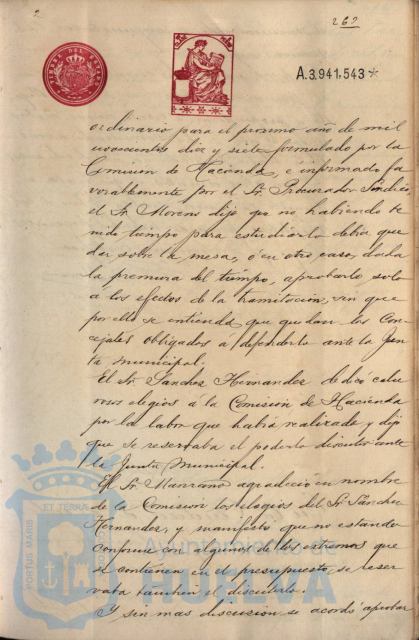 2
262
TIMBRE DEL ESTADO
A.3.941,543*
ordinario para el proximo año de mil
novecientos diez y siete formulado por la
Comision de Hacienda, é informado fa
vorablemente por el Sr. Procurador Sindico,
el Sr. Moreno dijo que no habiendo te
nido tiempo para estudiarlo debia que
dar sobre la mesa, ó en otro caso, dada
la premura del tiempo, aprobarlo solo
a los efectos de la tramitacion, sin que
por ello se entienda que quedan los Con
cejales obligados a defenderlo ante la Jun
ta Municipal.
El Sr. Sanchez Hernandez dedicó calu
rosos elogios á la Comisión de Hacienda
por la labor que habia realizado, y dijo
que se reservaba el poderlo discutir ante
la Junta Municipal.
El Sr. Manzano agradeció en nombre
de la Comision los elogios del Sr. Sanchez
Hernandez, y manifestó que no estando
conforme con algunos de los extremos que
se contienen en el presupuesto, se reser
vaba tambien el discutirlo.
Y sin mas discusion se acordó aprobar
PORTUS MARIS
ET TERRAE
Ayuntamiento de
HUELVA